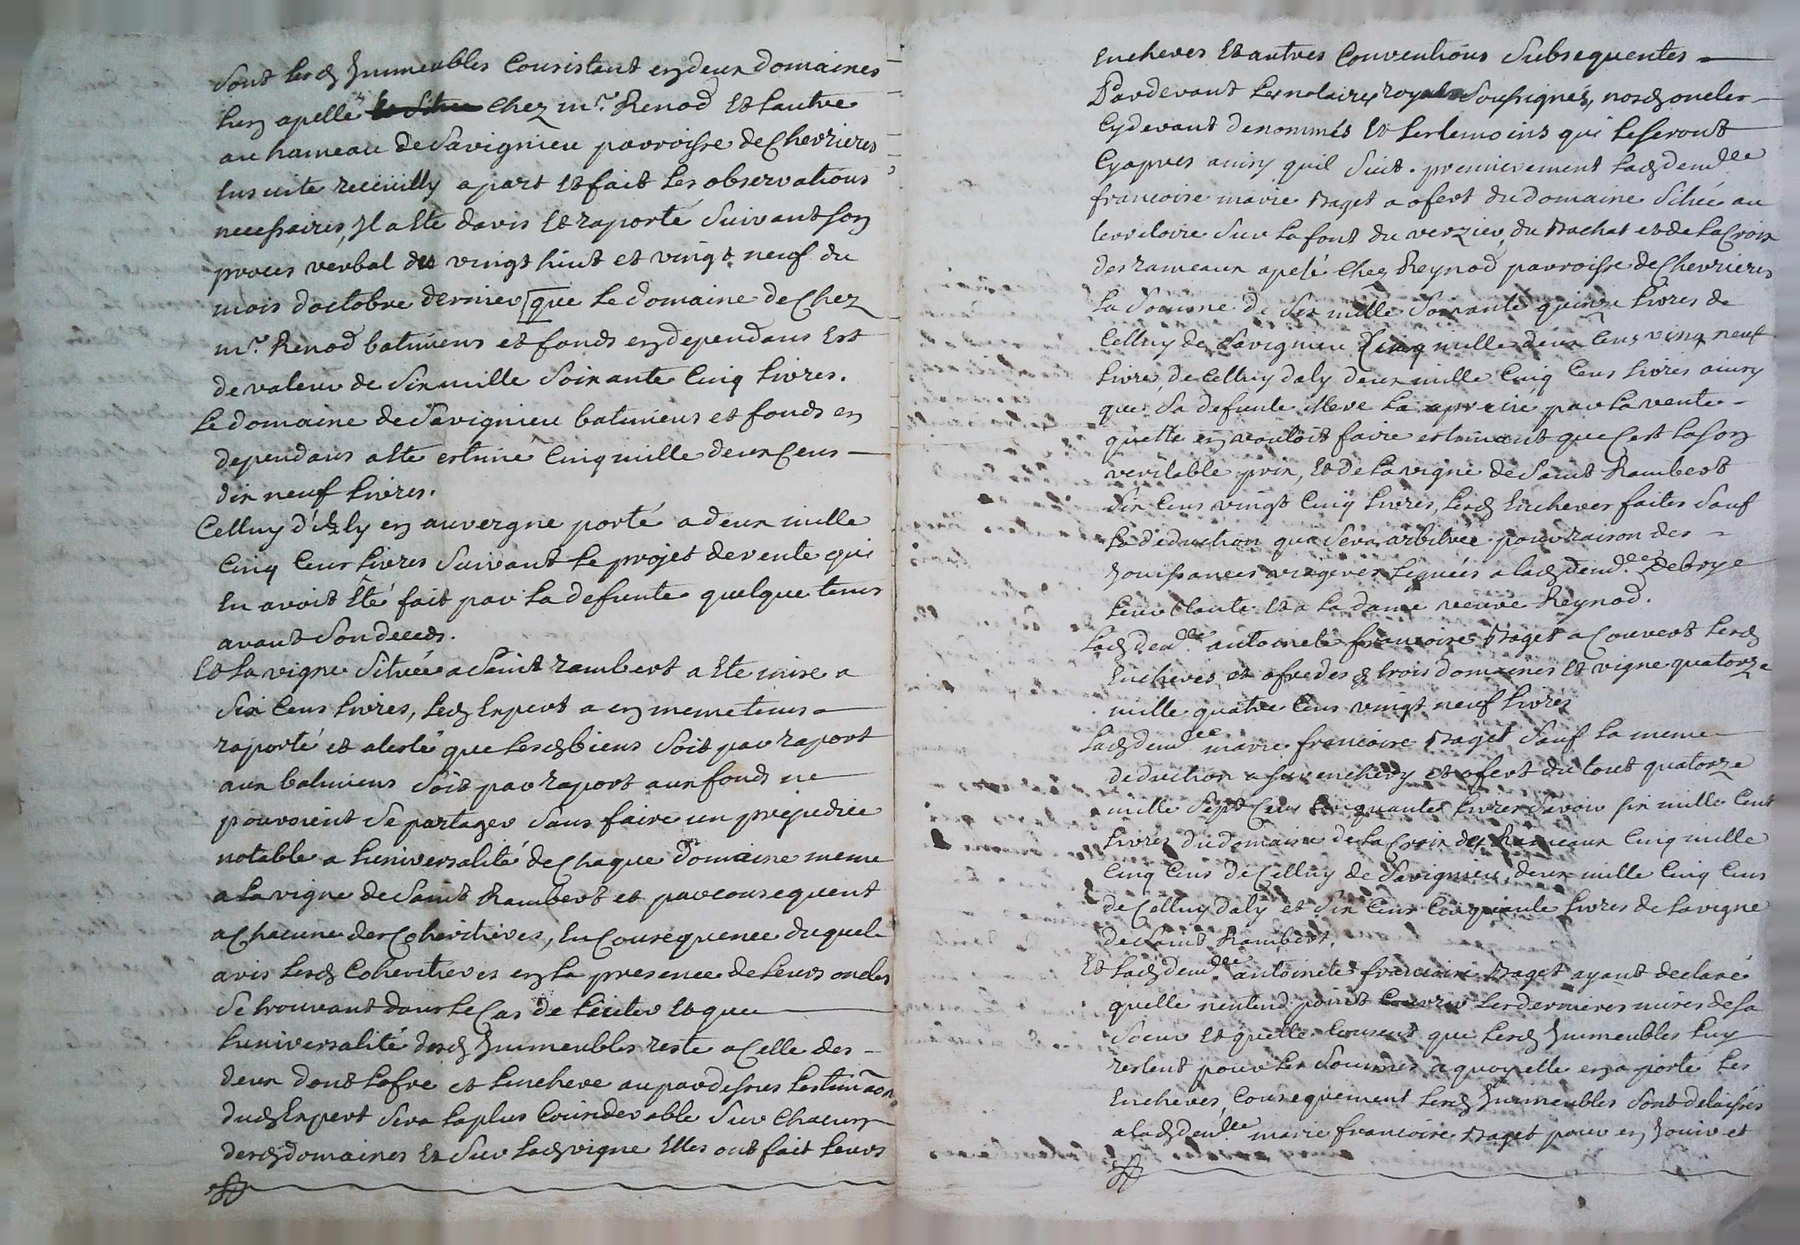 sont lesd Immeubles Consistant en deux domaines
lun apellé chez mr. Renod Et lautre
au hameau de Savignieu parroisse de Chevrieres
Ensuite recüuilly apart Et fait les observations
necessaires, Il a Eté davis Et raporté Suivant son
proces verbal des vingt huit et vingt neuf du
mois doctobre dernier que le domaine de Chez
mr. Renod batimens et fonds en dependans Est
de valeur de Six mille Soixante Cinq livres.
Le domaine de Savignieu batimens et fonds en
dependans a Eté estimé Cinq mille deux Cens
dix neuf livres.
Celluy d'Aly en auvergne porté a deux mille
Cinq Cens livres Suivant le projet de vente qui
En avoit Eté fait par la defunte quelque tems
avant Son decods.
Et la vigne Située a Saint rambert a Eté mise a
Six Cens livres, led Expert a en meme tems
raporté et atesté que lesd biens Soit par raport
aux batimens Soit par raport aux fonds ne
pouvoient Se partager Sans faire un prejudice
notable a luniversalité de Chaque domaine meme
a la vigne de Saint Rambert et par consequent
a Chacune des Coheritieres, En Consequence duquel
avis lesd Coheritieres en la presence de leurs oncles
Se trouvant dans le Cas de liciter Et que
luniversalité desd Immeubles reste a Celle des
deux dont lofre et lenchere au par dessus lestimaon
dud Expert Sera la plus Considerable Sur Chacun
desd domaines Et Sur lad vigne Elles ont fait leurs
Encheres Et autres Conventions Subsequentes
Pardevant les notaires royaux Soussignés, nosd oncles
Cydevant denommés Et les temoins qui le seront
Cyapres ainsy quil Suit. premierement lad demlle
francoise marie Baget a ofert du domaine Situé au
territoire Sur la font du verzier, du Bachat et de la Croix
des rameaux apelé Chez Reynod parroisse de Chevrieres
la Somme de Six mille Soixante quinze livres de
Celluy de Savignieu Cinq mille deux Cens vingt neuf
livres de Celluy daly deux mille Cinq Cens livres ainsy
que Sa defunte Mere la aprecié par la vente
quelle en vouloit faire estimant que Cest la son
veritable prix, Et de la vigne de Saint Rambert
Six Cens vingt Cinq livres, lesd Encheres faites Sauf
la deduction qui Sera arbitrée pour raison des
Jouissances viageres leguées a lad demlle Deboye
leur tante Et a la dame veuve Reynod.
Lad demlle antoinete francoise Baget a Couvert lesd
Encheres et ofre desd trois domaines Et vigne quatorze
mille quatre Cens vingt neuf livres
Lad demlle marie francoise Baget Sauf la meme
deduction a Surenchery et ofert du tout quatorze
mille Sept Cens Cinquante livres Savoir Six mille Cent
livres du domaine de la Croix des Rameaux Cinq mille
Cinq Cens de Celluy de Savignieu, deux mille Cinq Cens
de Celluy daly et Six Cens Cinquante livres de la vigne
de Saint Rambert.
Et lad demlle antoinete francoise Baget ayant declaré
quelle nentend point Couvrir les dernieres mises de sa
Soeur Et quelle Consent que lesd Immeubles luy
restent pour les Sommes a quoy elle en a porté les
Encheres, Consequemment lesd Immeubles Sont delaissés
a lad demlle marie francoise Baget pour en Jouir et